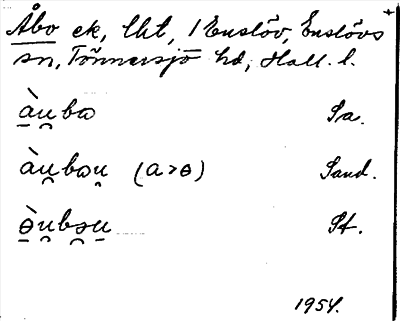 Åbo ek, lht, 1 Enslöv, Enslövs
sn, Tönnersjö hd, Hall. l.
à̱u̯bɷ Sa.
àu̯bɷu̯ (a>ɵ) Sand.
ɵ̱̀u̯bɷ̯u̱ St.
1954.